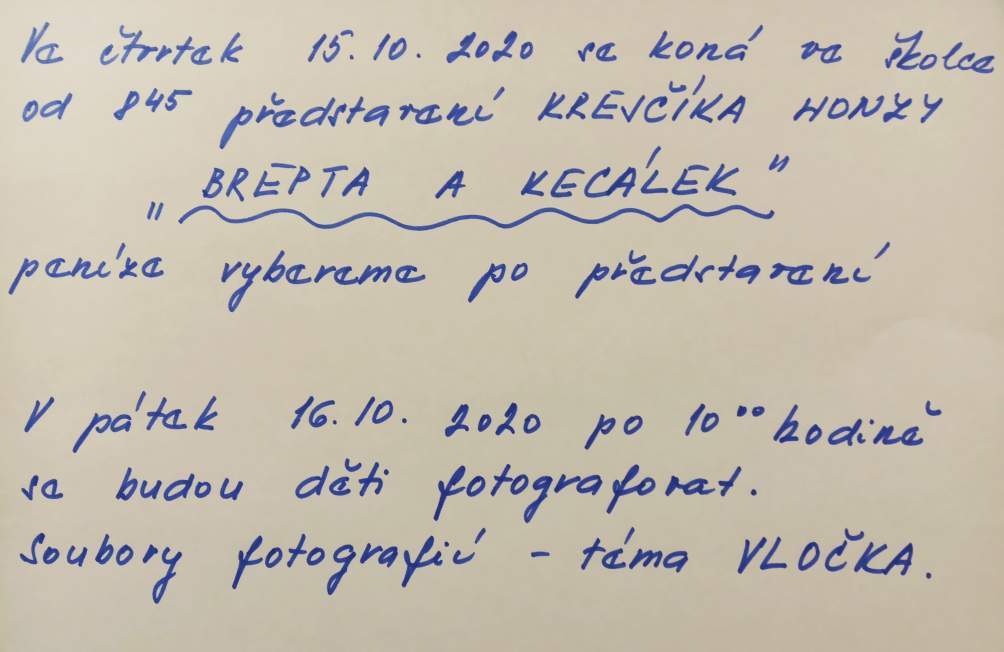 Ve čtvrtek 15.10.2020 se koná ve školce
od 8⁴⁵ představení KREJČÍKA HONZY
„BREPTA A KECÁLEK"
peníze vybereme po představení
V pátek 16.10.2020 po 10⁰⁰ hodině
se budou děti fotografovat.
Soubory fotografií - téma VLOČKA.